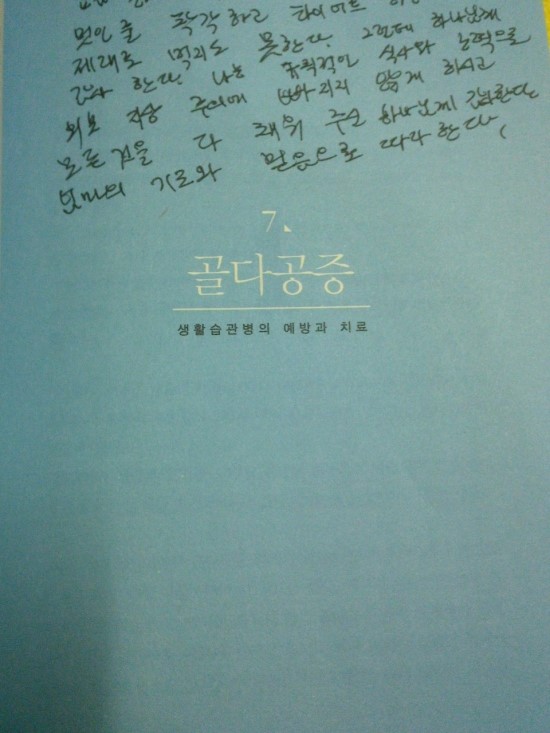 멋인줄 착각하고 다이어트
제대로 먹지도 못한다. 그런데 하나님께
감사 한다. 나는 규칙적인 식사와 노력으로
외모 지상 주의에 빠지지 않게 하시고
모든것을 다 채워 주신 하나님께 감사한다
엄마의 기도와 믿음으로 따라 한다.
7.
골다공증
생활습관병의 예방과 치료